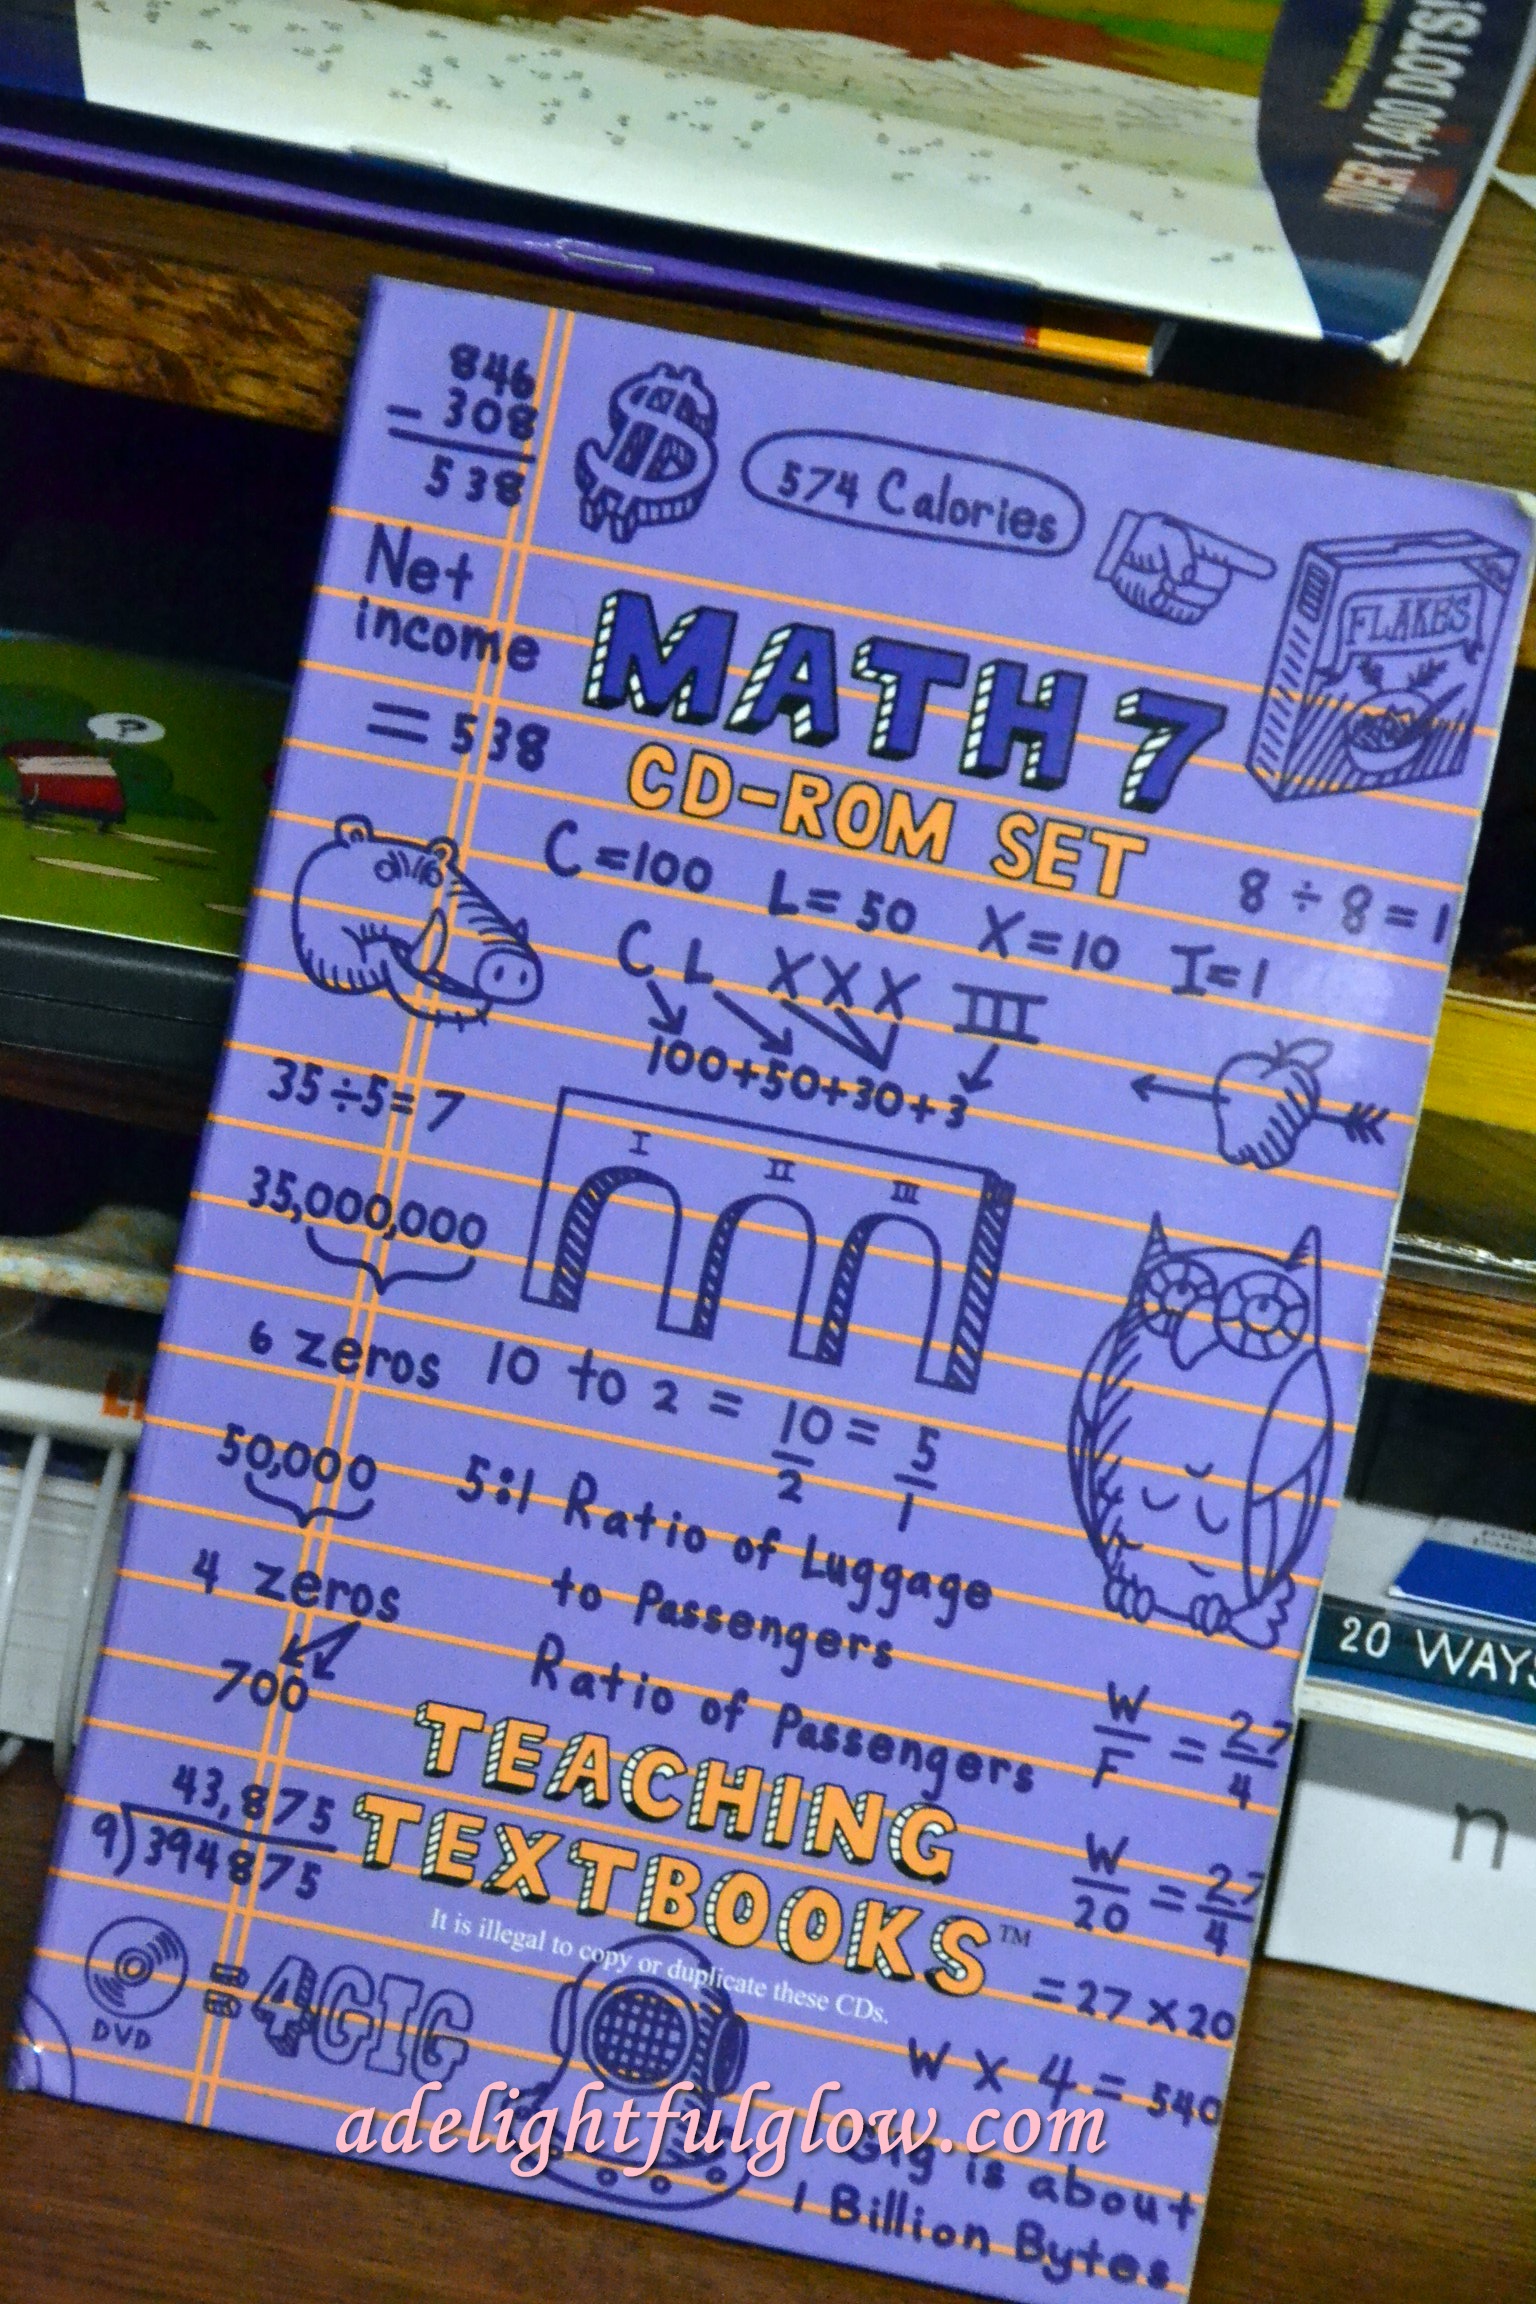 OVER 1,400 DOTS!
846
- 308
538
574 Calories
Net
income
= 538
FLAKES
MATH 7
CD-ROM SET
C = 100 L = 50 X = 10 I = 1
8 ÷ 8 = 1
C L X X X III
100+50+30+3
35÷5=7
I II III
35,000,000
6 zeros
10 to 2 = 10/2 = 5/1
50,000
4 zeros
700
5:1 Ratio of Luggage
to Passengers
Ratio of Passengers
W/F = 27/4
W/20 = 27/4
= 27 x 20
W x 4 = 540
43,875
9)394875
TEACHING
TEXTBOOKS™
It is illegal to copy or duplicate these CDs.
DVD
= 4GIG
Gig is about
1 Billion Bytes
adelightfulglow.com
?
20 WAYS
n